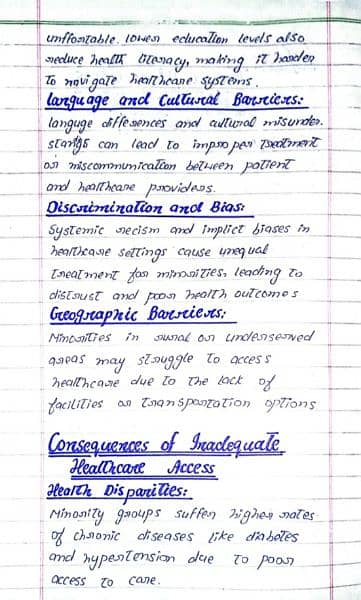 unffortable. lower education levels also
reduce health literacy, making it harder
to navigate healthcare systems.
Language and Cultural Barriers:
languge differences and cultural misunder.
stangs can lead to improper treatment
or miscommunication between patient
and healthcare providers.
Discrimination and Bias:
Systemic recism and implict biases in
healthcare settings cause unequal
treatment for minorities, leading to
distrust and poor health outcomes
Geographic Barriers:
Minorities in rural or underserved
areas may struggle to access
healthcare due to the lack of
facilities or transportation options
Consequences of Inadequate
Healthcare Access
Health Disparities:
Minority groups suffer higher rates
of chronic diseases like diabetes
and hypertension due to poor
access to care.